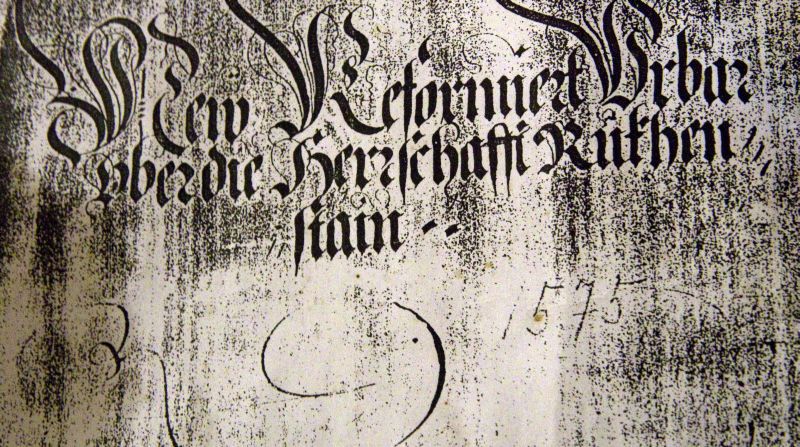 New Reformiert Vrbar
vber die Herrschafft Rükhen„
„stain
1575